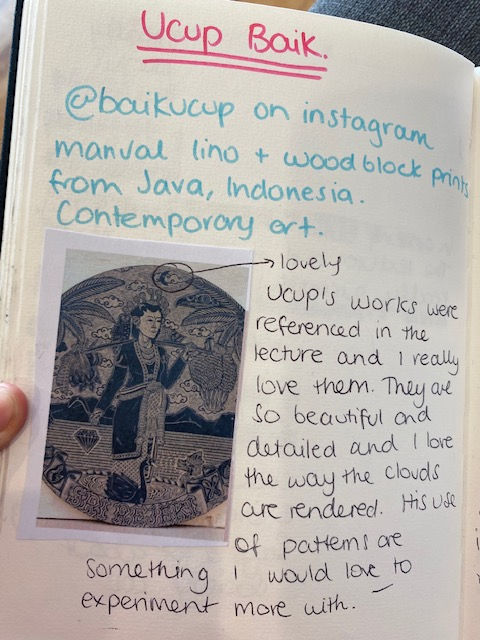 Ucup Baik.
@baikucup on instagram
manual lino + woodblock prints
from Java, Indonesia.
Contemporary art.
lovely
Ucup's works were
referenced in the
lecture and I really
love them. They are
so beautiful and
detailed and I love
the way the clouds
are rendered. His use
of patterns are
something I would love to
experiment more with.
SRI REJEKI